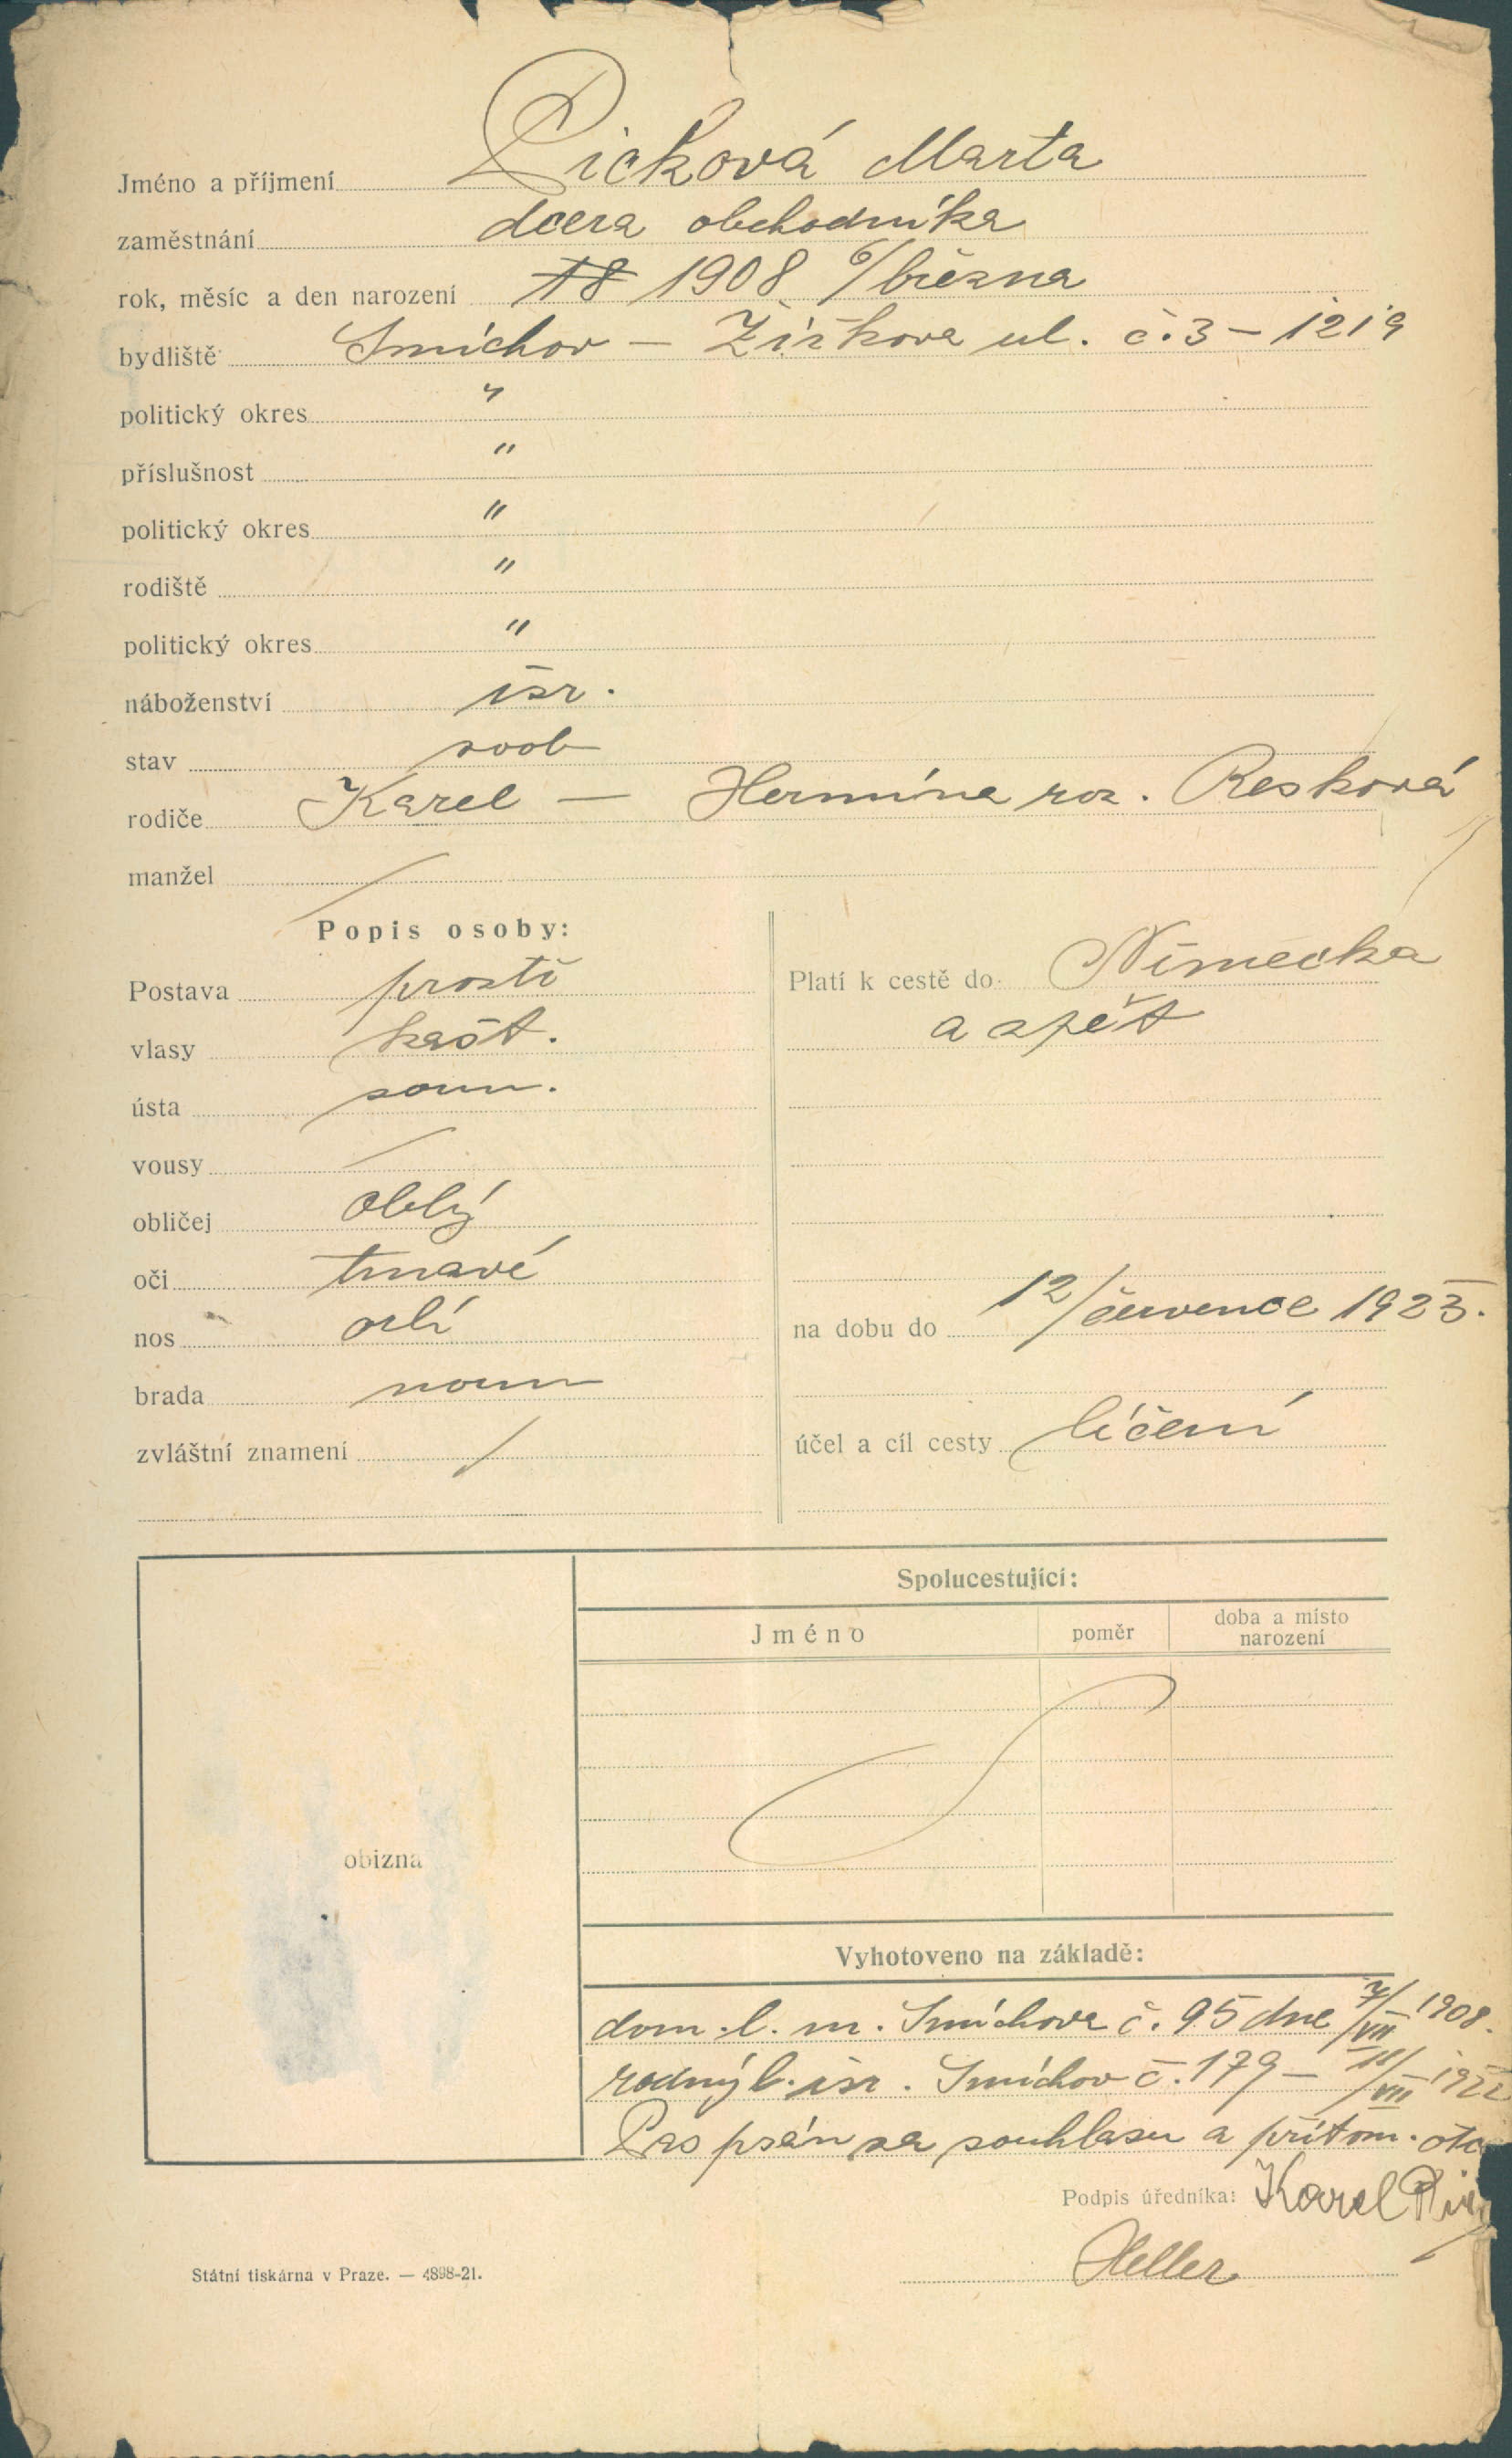 Jméno a příjmení Picková Marta
zaměstnání dcera obchodníka
rok, měsíc a den narození 18 1908 6/března
bydliště Smíchov – Žižkova ul. č. 3 – 1219
politický okres "
příslušnost "
politický okres "
rodiště "
politický okres "
náboženství isr.
stav svob
rodiče Karel — Hermína roz. Resková
manžel /
Popis osoby:
Postava prostř
vlasy kašt.
ústa soum.
vousy /
obličej oblý
oči tmavé
nos orlí
brada
zvláštní znamení /
Platí k cestě do Německa
a zpět
na dobu do 12/července 1923.
účel a cíl cesty léčení
Spolucestující:
Jméno poměr doba a místo narození
obizna
Vyhotoveno na základě:
dom. l. m. Smíchova č. 95 dne 7/VII 1908.
rodný l. isr. Smíchov č. 179 – 11/VII 1922
Pas psán za souhlasu a přítom. otc
Podpis úředníka: Karel Pi
Heller
Státní tiskárna v Praze. — 4898-21.